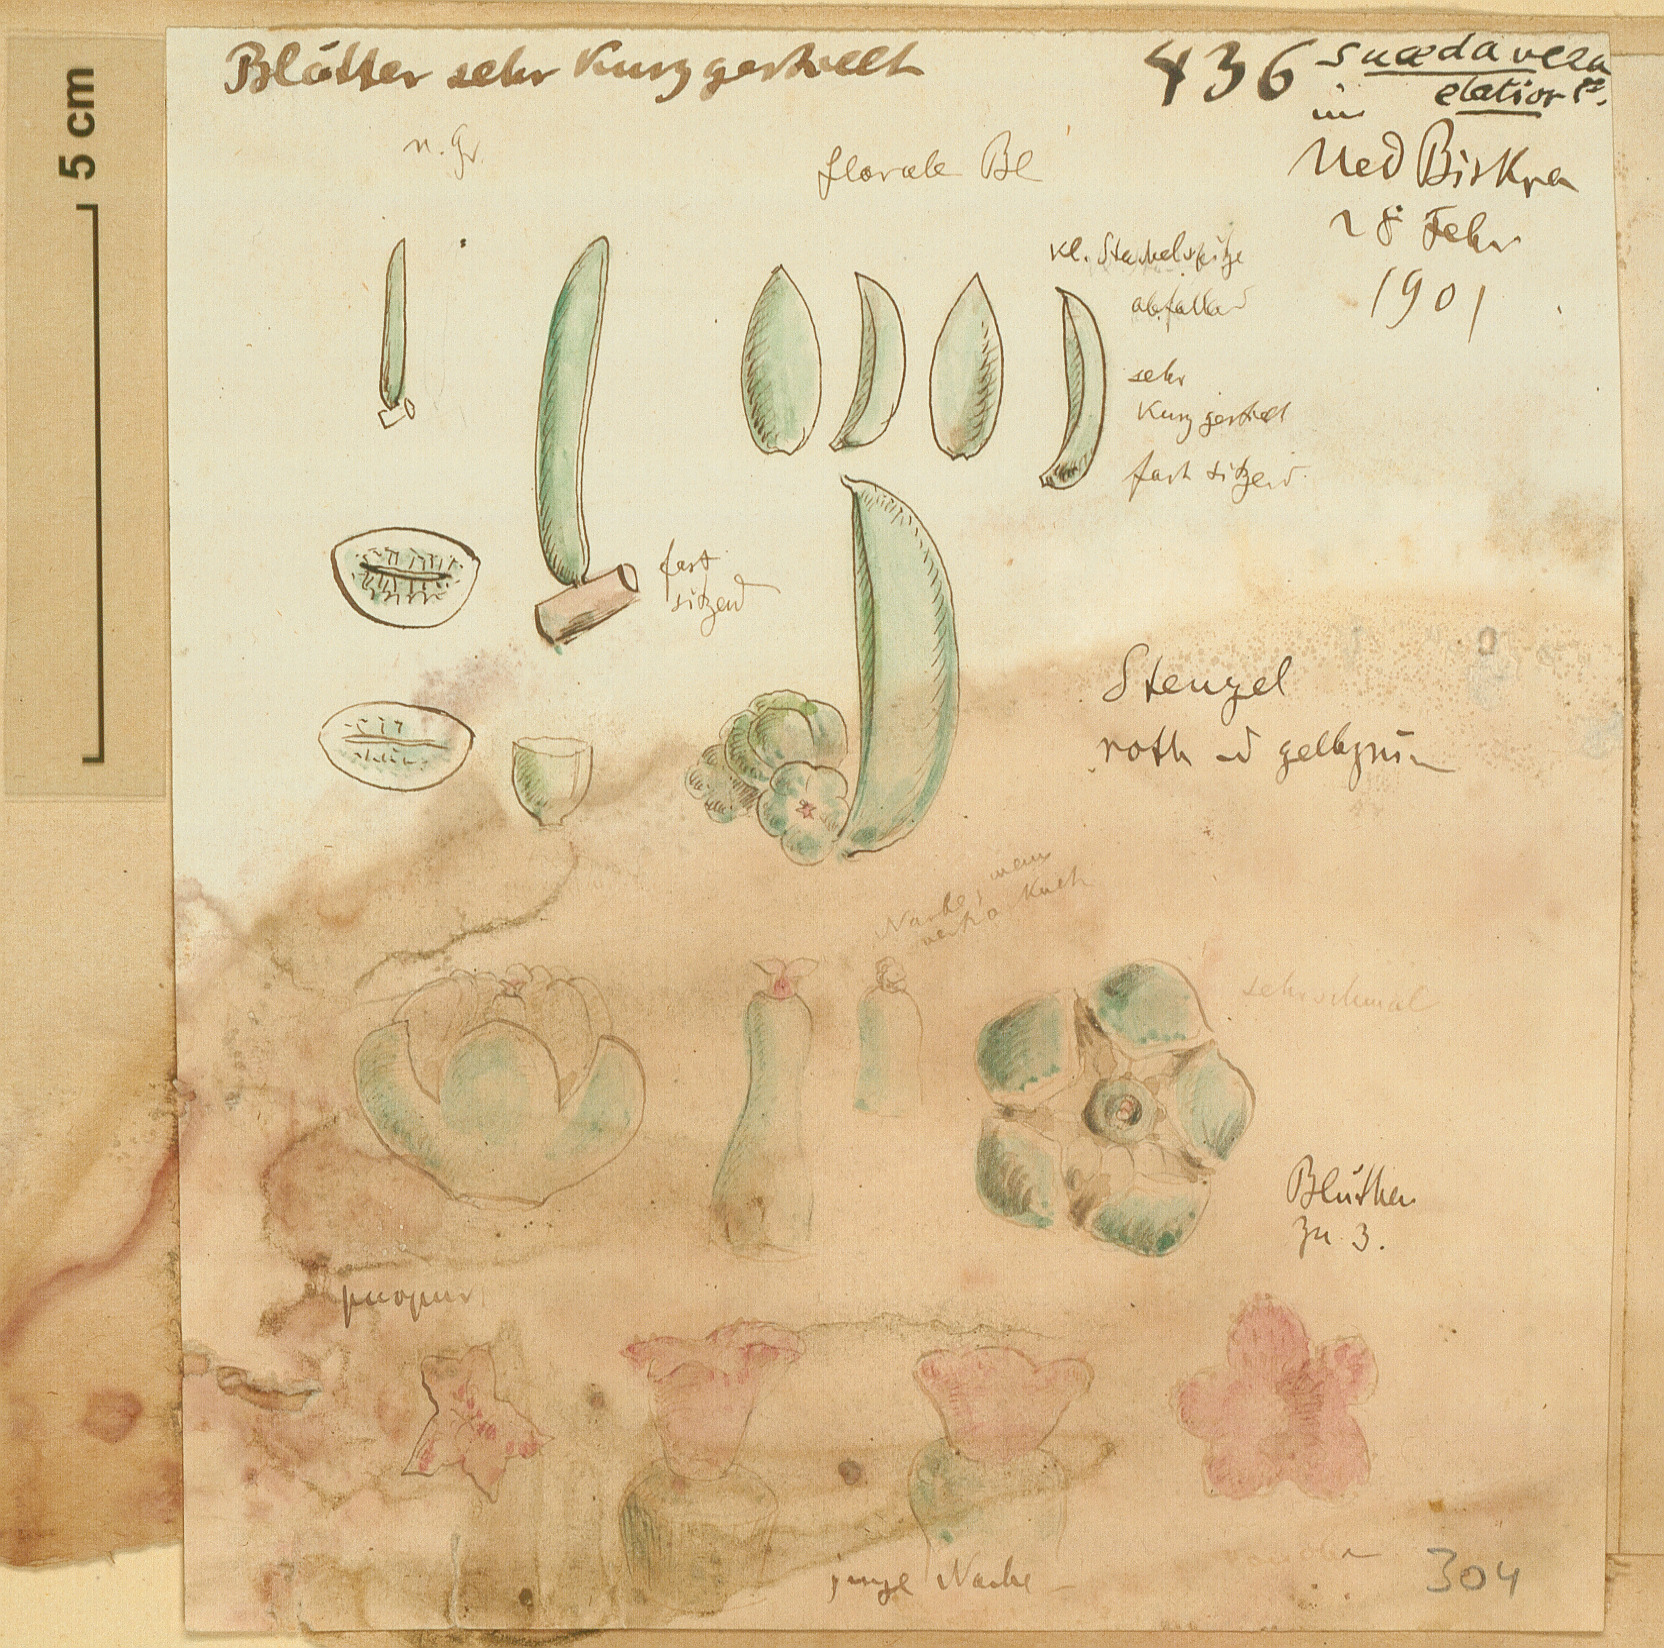 5 cm
Blätter sehr kurz gestielt
436 suæda vera
elatior
im
Ued Biskra
28 Febr
1901
n. Gr.
florale Bl
kl. Stachelspitze
abfallend
sehr
kurz gestielt
fast sitzend
fast
sitzend
Stengel
roth ud gelbgrün
Narbe, wenn
sehr schmal
Blüthen
zu 3.
purpur
junge Narbe
304